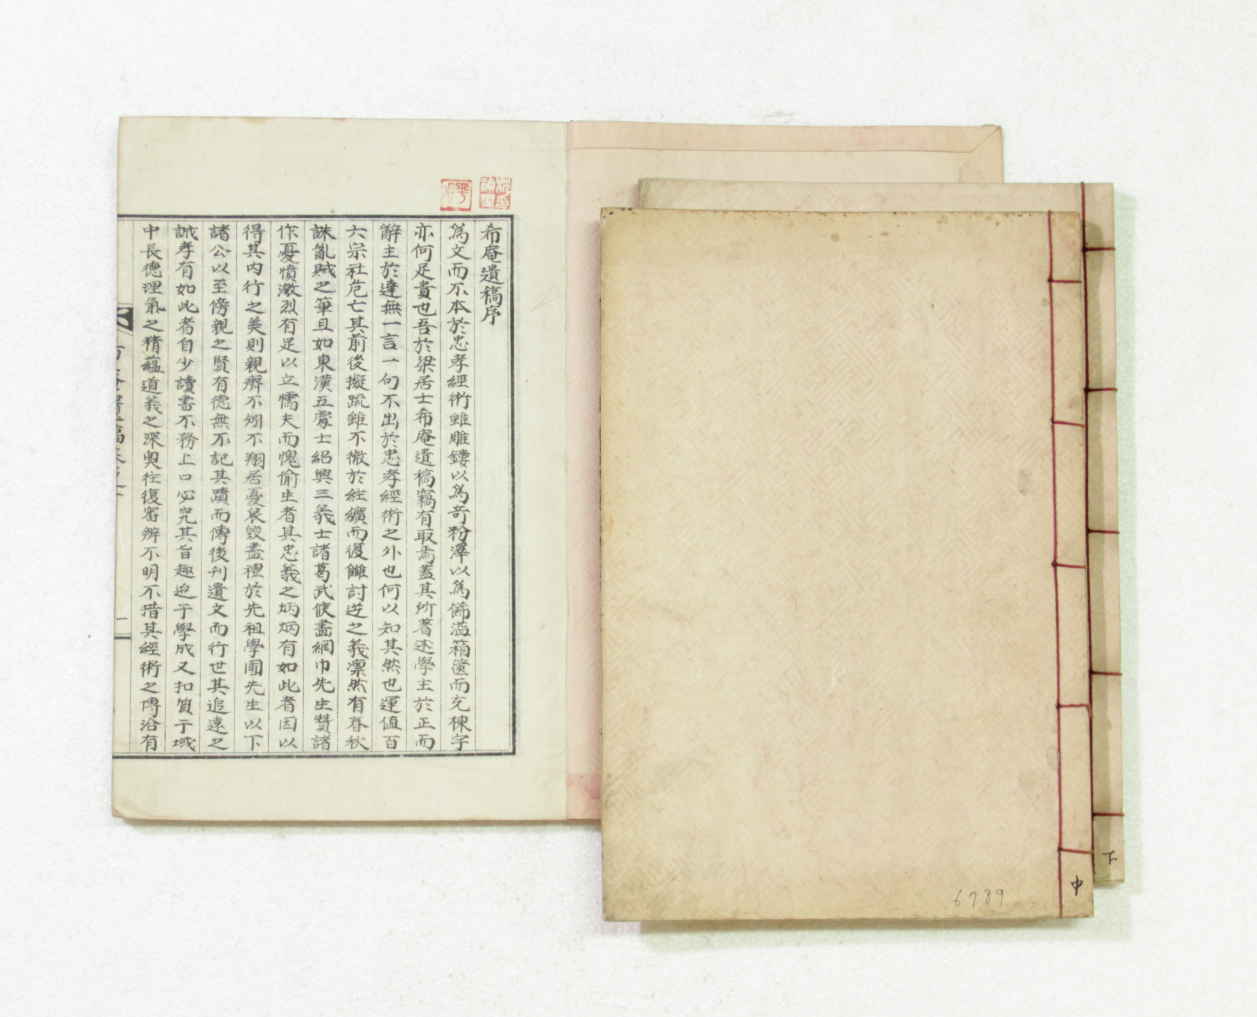 希庵遺稿序
爲文而不本於忠孝經術雖雕鏤以爲奇粉澤以爲飾溢箱篋而充棟宇
亦何足貴也吾於梁居士希庵遺稿竊有取焉蓋其所著述學主於正而
辭主於達無一言一句不出於忠孝經術之外也何以知其然也運值百
六宗社危亡其前後擬疏雖不徹於紸纊而復讎討逆之義凜然有春秋
誅亂賊之筆且如東漢五處士紹興三義士諸葛武侯畵網巾先生贊諸
作憂憤激烈有足以立懦夫而愧偷生者其忠義之炳炳有如此者因以
得其內行之美則親癠不矧不翔居憂哀毀盡禮於先祖學圃先生以下
諸公以至傍親之賢有德無不記其蹟而傳後刋遺文而行世其追遠之
誠孝有如此者自少讀書不務上口必究其旨趣迨于學成又扣質于域
中長德理氣之精蘊道義之深奧往復審辨不明不措其經術之傳洽有
一
中
下
6789